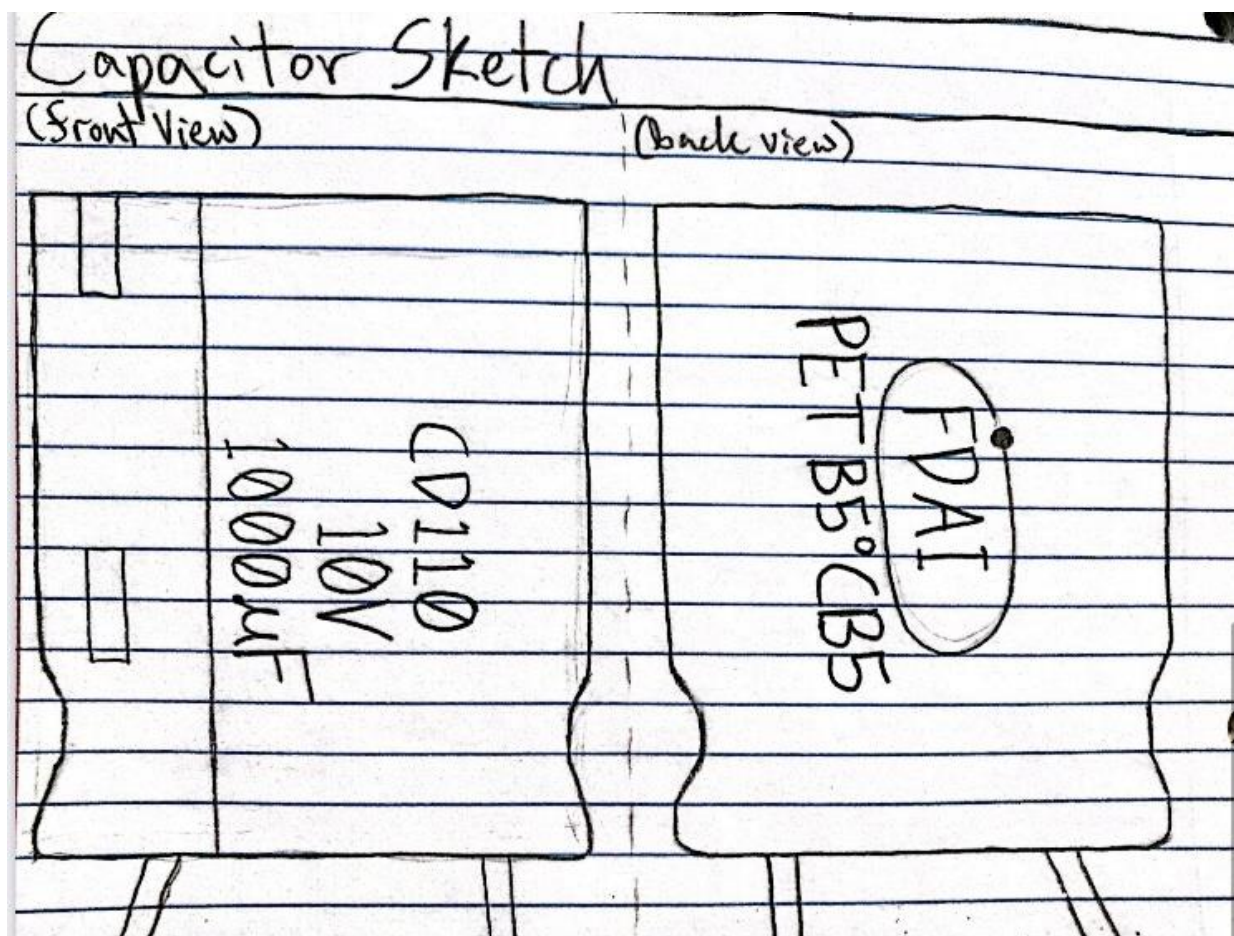 Capacitor Sketch
(front view)
(back view)
CD110
10V
1000µF
FDAI
PET B5°CB5